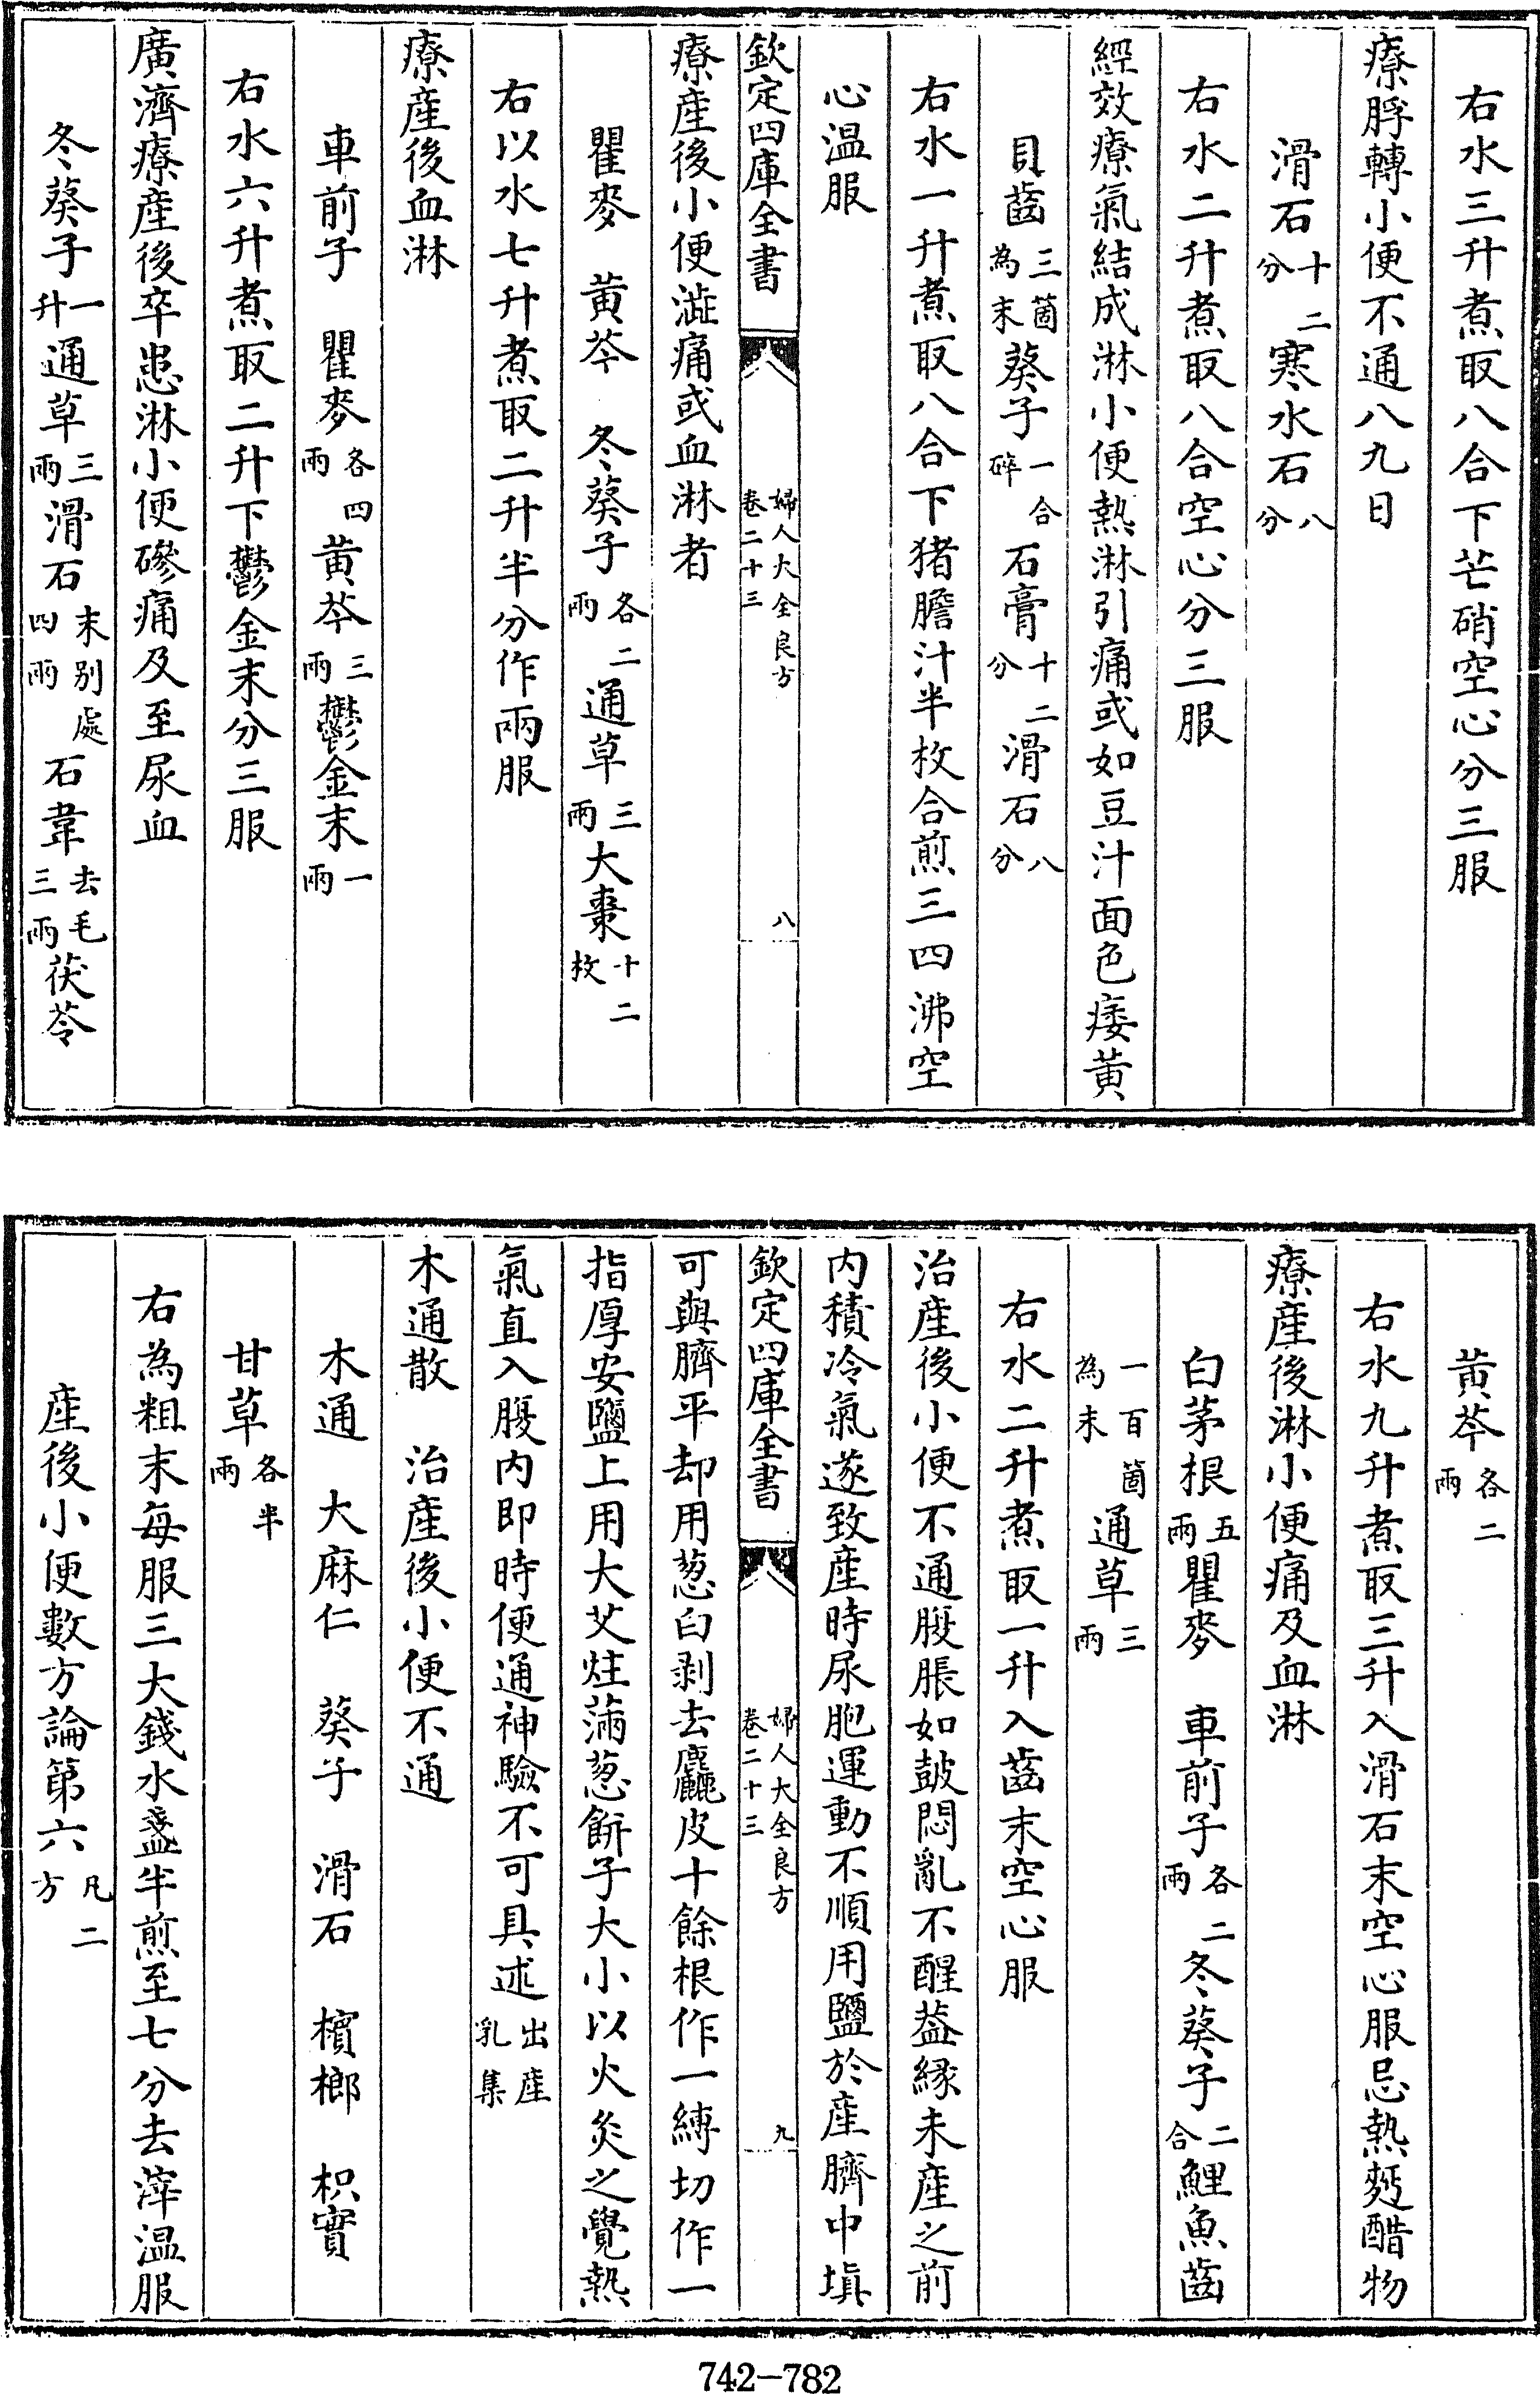 右水三升煮取八合下芒硝空心分三服
療脬轉小便不通八九日
滑石十二分寒水石八分
右水二升煮取八合空心分三服
經效療氣結成淋小便熱淋引痛或如豆汁面色痿黄
貝齒三箇為末葵子一合碎石膏十二分滑石八分
右水一升煮取八合下猪膽汁半枚合煎三四沸空
心温服
欽定四庫全書 婦人大全良方卷二十三 八
療産後小便澁痛或血淋者
瞿麥 黄芩 冬葵子各二兩通草三兩大棗十二枚
右以水七升煮取二升半分作兩服
療産後血淋
車前子 瞿麥各四兩黄芩三兩鬱金末一兩
右水六升煮取二升下鬱金末分三服
廣濟療産後卒患淋小便磣痛及至尿血
冬葵子一升通草三兩滑石末别處四兩石韋去毛三兩茯苓
黄芩各二兩
右水九升煮取三升入滑石末空心服忌熱麪醋物
療産後淋小便痛及血淋
白茅根五兩瞿麥 車前子各二兩冬葵子二合鯉魚齒
一百箇為末通草三兩
右水二升煮取一升入齒末空心服
治産後小便不通腹脹如鼓悶亂不醒葢緣未産之前
内積冷氣遂致産時尿胞運動不順用鹽於産臍中填
欽定四庫全書 婦人大全良方卷二十三 九
可與臍平却用葱白剥去麤皮十餘根作一縛切作一
指厚安鹽上用大艾炷滿葱餅子大小以火灸之覺熱
氣直入腹内即時便通神驗不可具述出産乳集
木通散 治産後小便不通
木通 大麻仁 葵子 滑石 檳榔 枳實
甘草各半兩
右為粗末每服三大錢水盞半煎至七分去滓温服
産後小便數方論第六凡二方
742-782